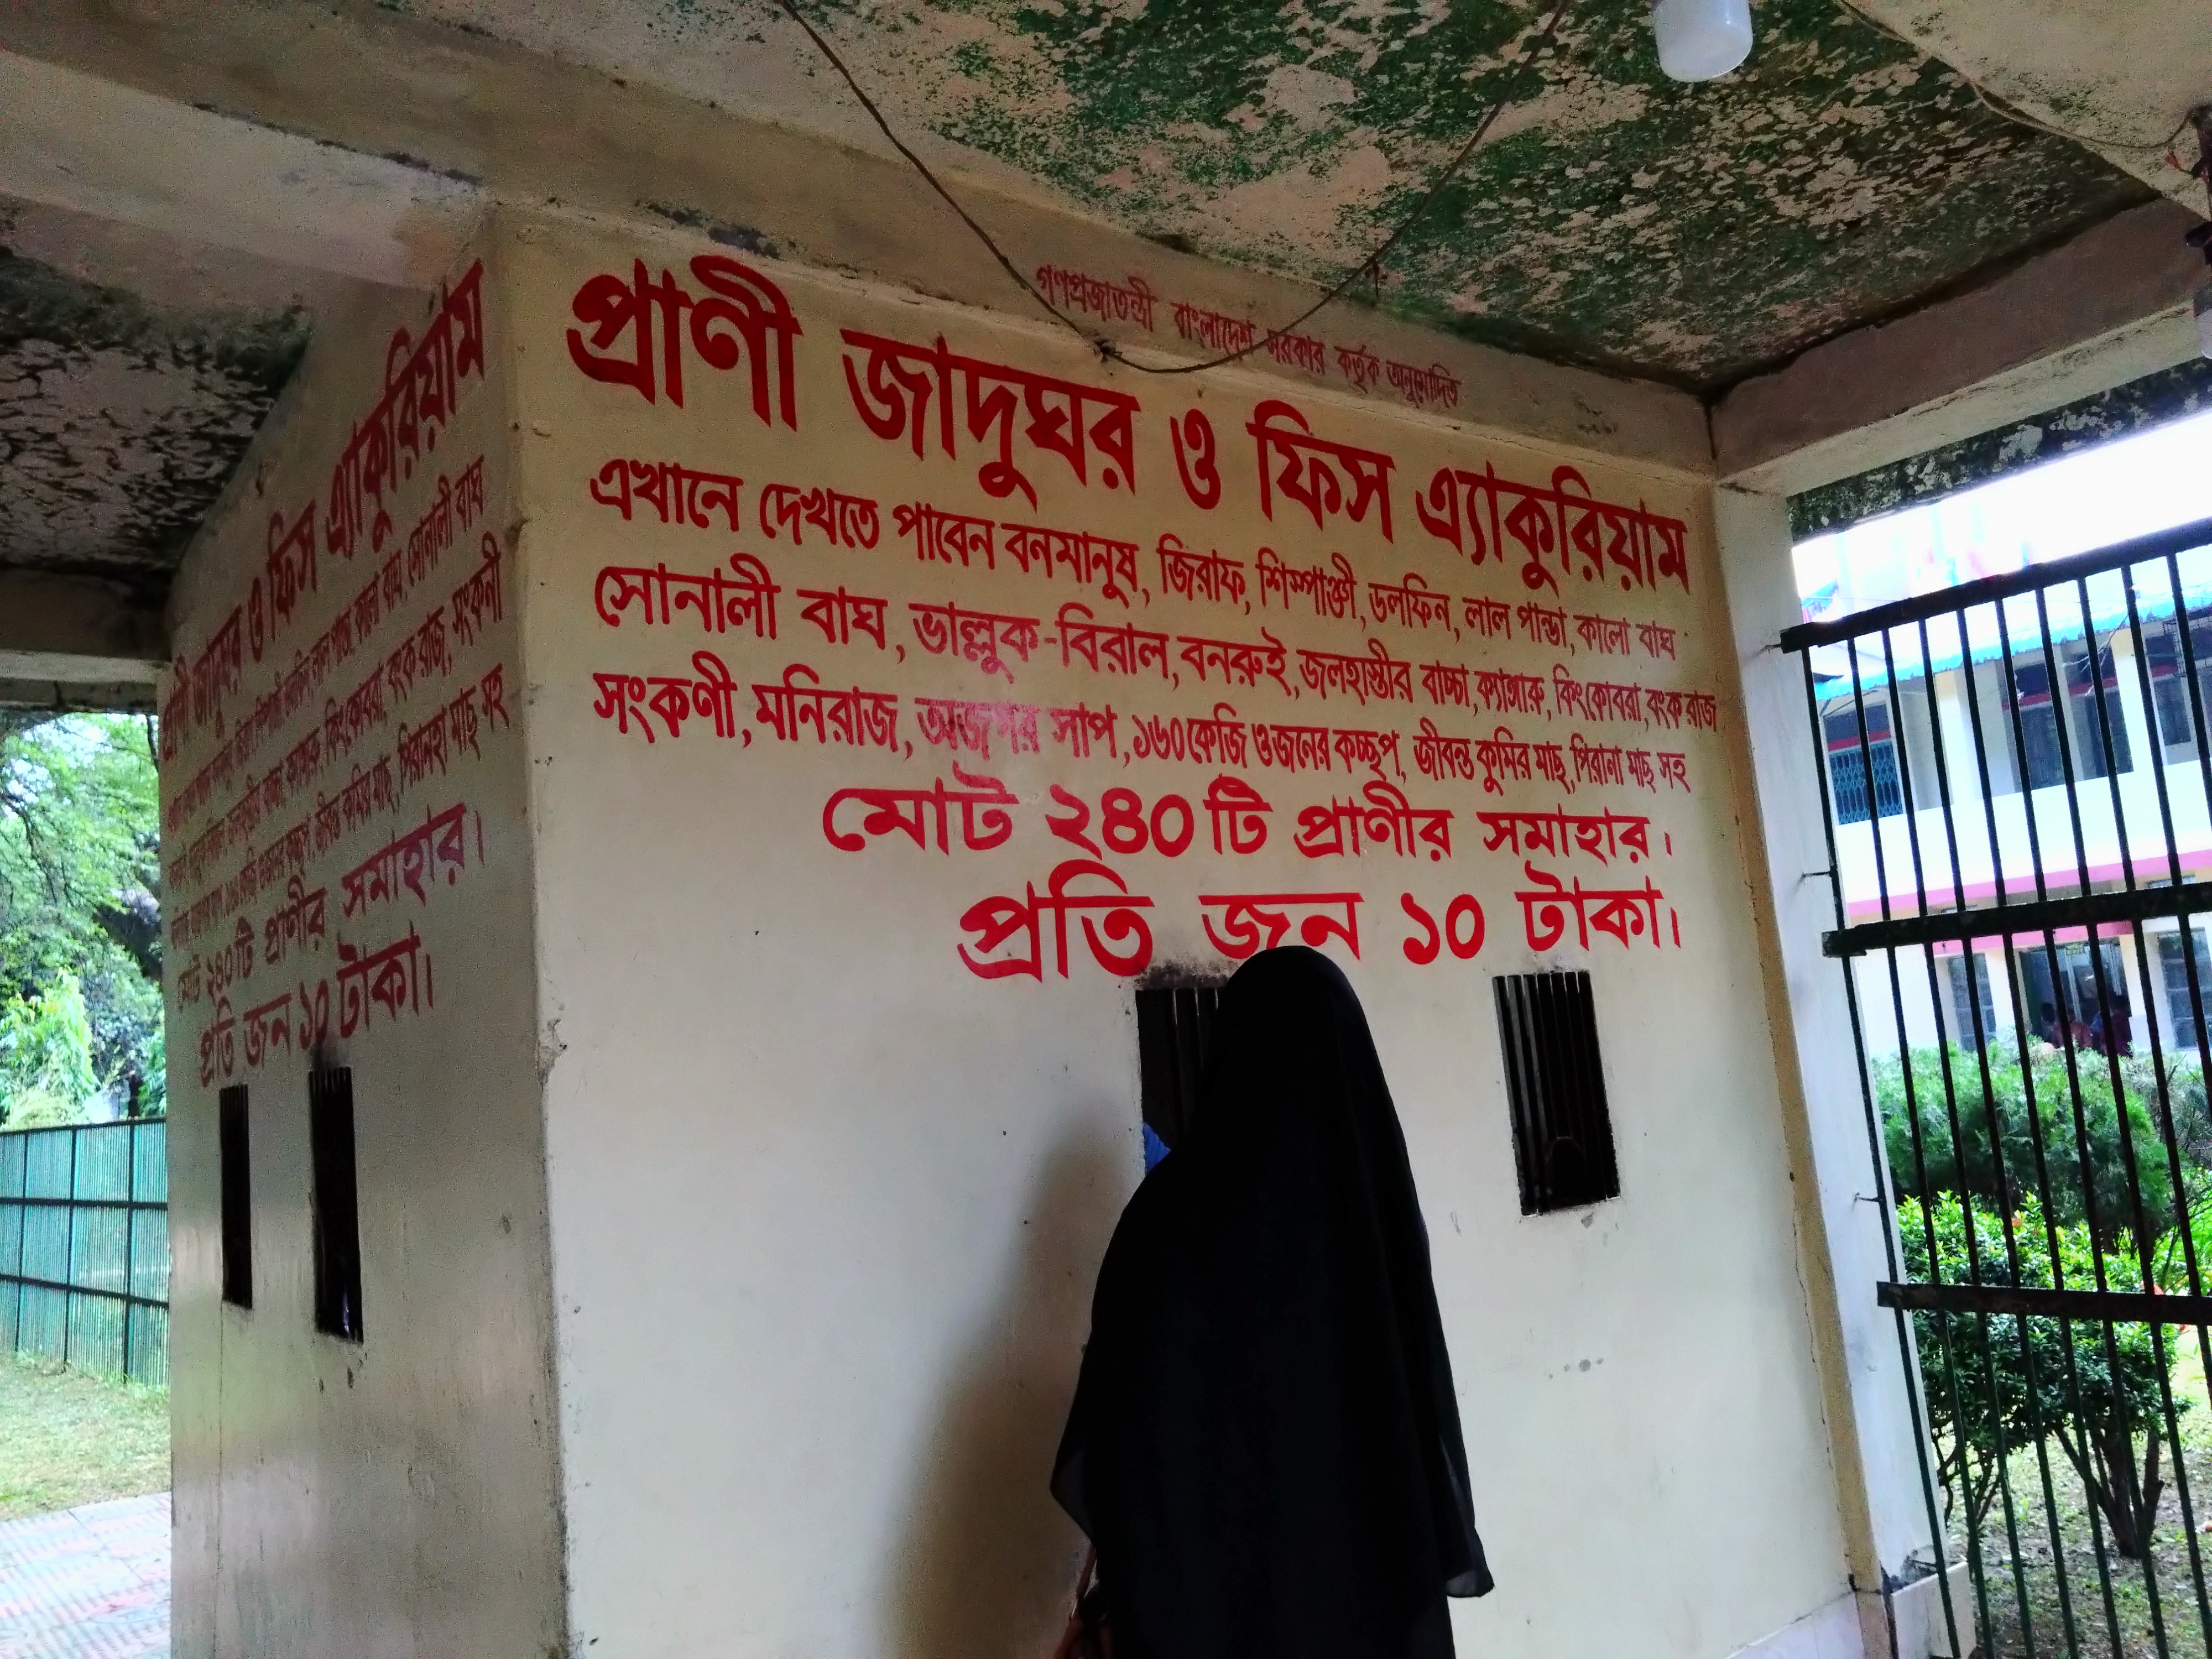 গণপ্রজাতন্ত্রী বাংলাদেশ সরকার কর্তৃক অনুমোদিত
প্রাণী জাদুঘর ও ফিস এ্যাকুরিয়াম
এখানে দেখতে পাবেন বনমানুষ, জিরাফ, শিম্পাঞ্জী, ডলফিন, লাল পান্ডা, কালো বাঘ
সোনালী বাঘ, ভাল্লুক-বিরাল, বনরুই, জলহাস্তীর বাচ্চা, ক্যাঙ্গারু, কিংকোবরা, বংক রাজ
সংকণী, মনিরাজ, অজগর সাপ, ১৬০ কেজি ওজনের কচ্ছপ, জীবন্ত কুমির মাছ, পিরানা মাছ সহ
মোট ২৪০ টি প্রাণীর সমাহার।
প্রতি জন ১০ টাকা।
প্রাণী জাদুঘর ও ফিস এ্যাকুরিয়াম
লাল পান্ডা, কালো বাঘ, সোনালী বাঘ
কিংকোবরা, বংক রাজ, সংকনী
জীবন্ত কুমির মাছ, পিরানহা মাছ সহ
মোট ২৪০ টি প্রাণীর সমাহার।
প্রতি জন ১০ টাকা।